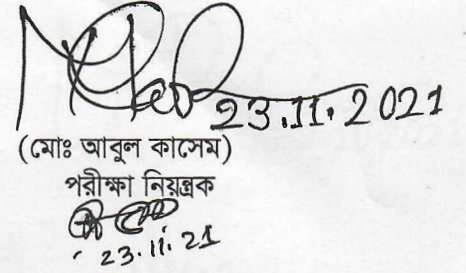 23.11.2021
(মোঃ আবুল কাসেম)
পরীক্ষা নিয়ন্ত্রক
23.11.21